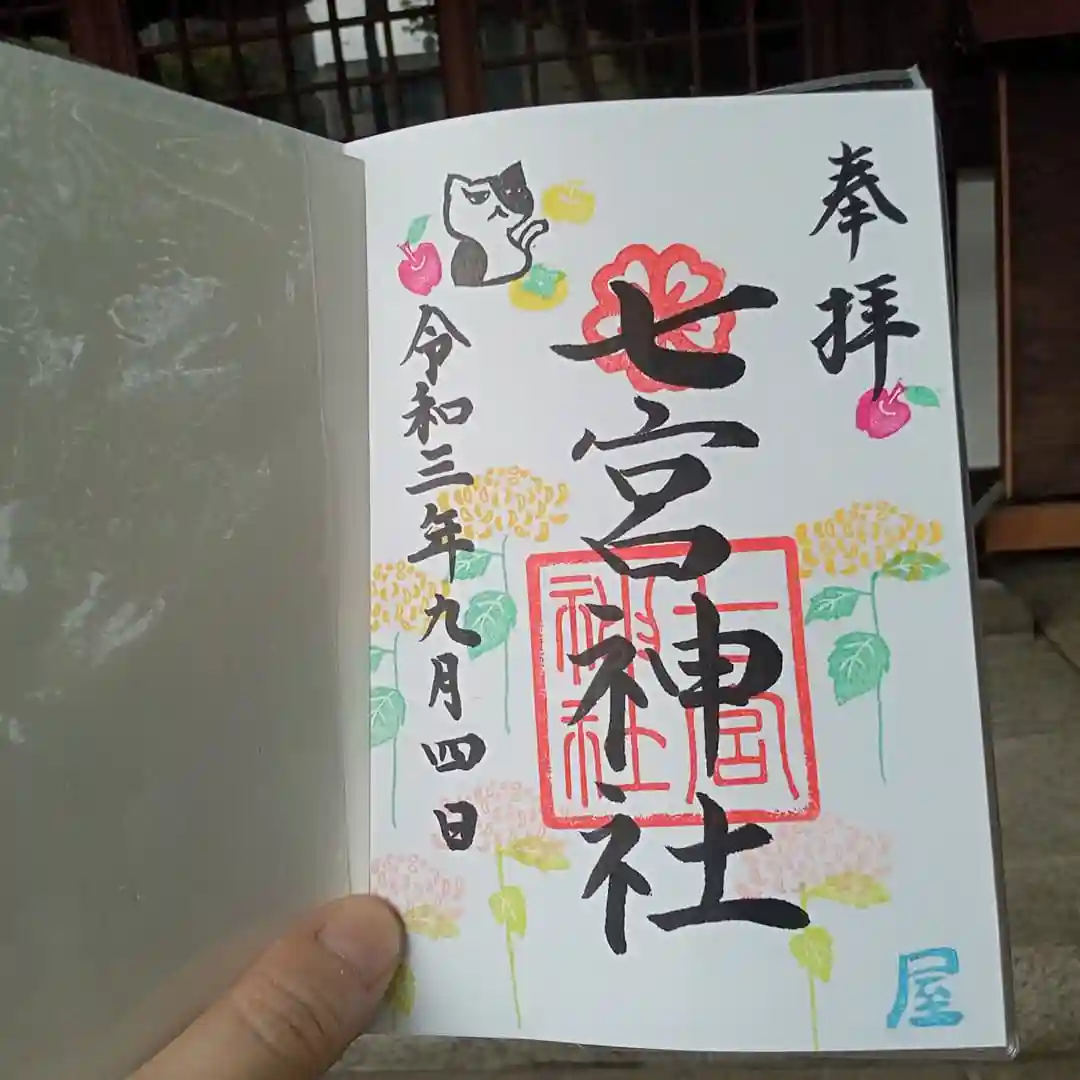 奉拝
七宮神社
七宮神社
令和三年九月四日
屋